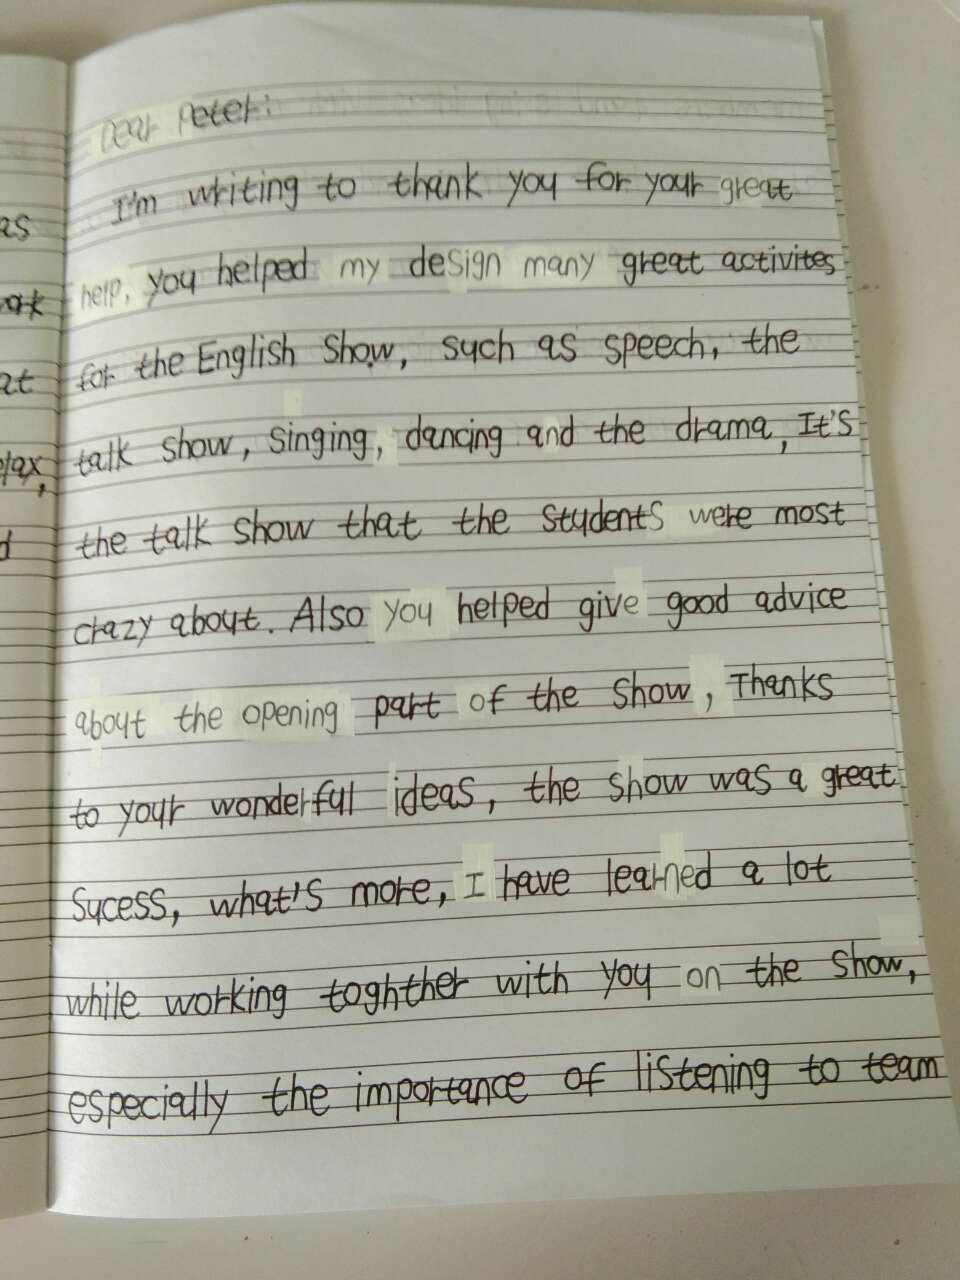 Dear Peter:
I'm writing to thank you for your great
help, you helped my design many great activites
for the English Show, such as speech, the
talk show, singing, dancing and the drama, It's
the talk show that the students were most
crazy about. Also you helped give good advice
about the opening part of the show, Thanks
to your wonderful ideas, the show was a great
Sucess, what's more, I have learned a lot
while working toghther with you on the show,
especially the importance of listening to team
as
at
d